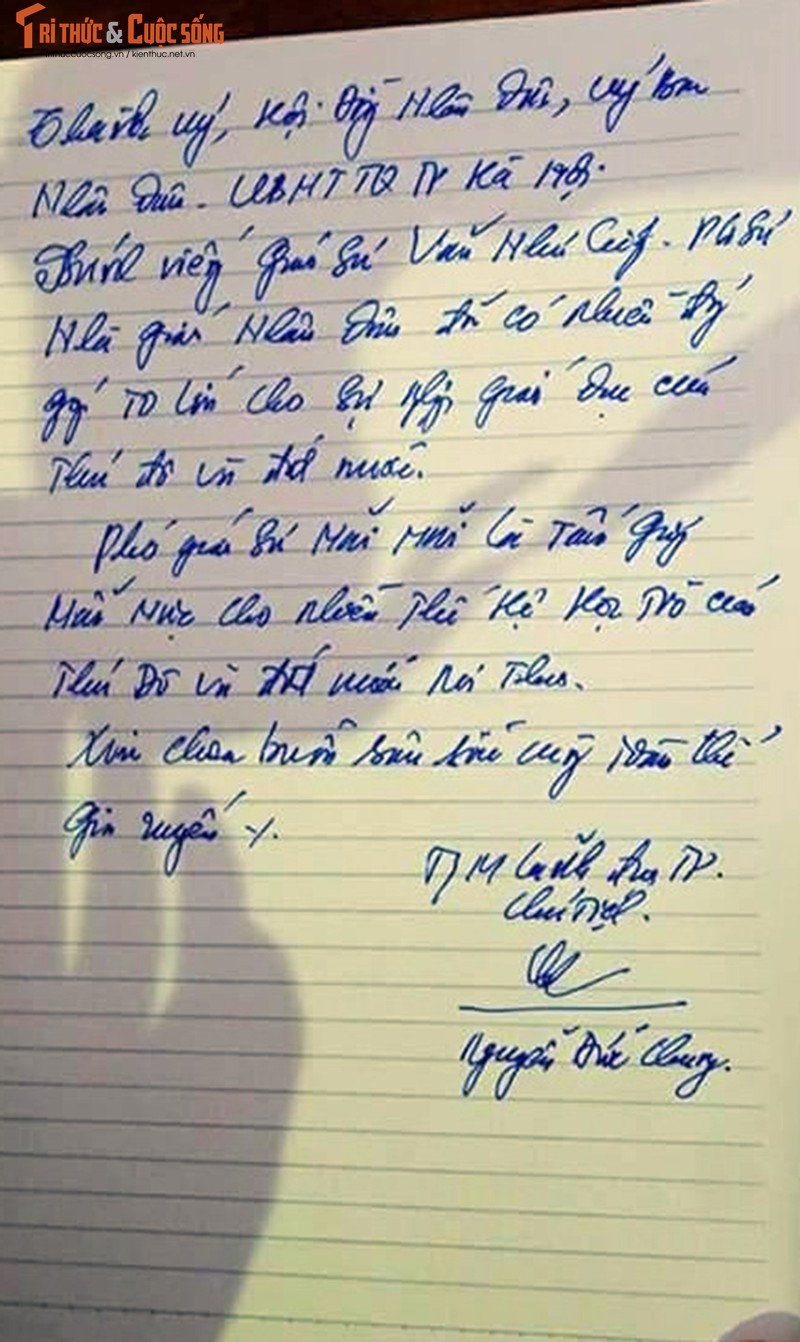 TRI THỨC & CUỘC SỐNG
trithuccuocsong.vn / kienthuc.net.vn
Thành uỷ, Hội Đồng Nhân Dân, Uỷ ban
Nhân Dân. UBMTTQ TP Hà Nội.
Kính viếng Giáo sư Văn Như Cương. PGSư
Nhà giáo Nhân Dân đã có nhiều đóng
góp to lớn cho sự nghiệp giáo dục của
Thủ đô và đất nước.
Phó giáo sư mãi mãi là tấm gương
mẫu mực cho nhiều thế hệ học trò của
Thủ Đô và đất nước noi theo.
Xin chia buồn sâu sắc cùng toàn thể
gia quyến
T/M Lãnh đạo TP.
Chủ tịch.
Nguyễn Đức Chung.